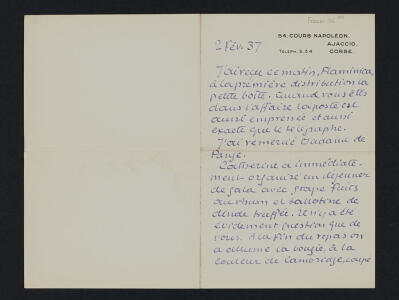 54, COURS NAPOLÉON.
AJACCIO.
TÉLÉPH. 5.34 CORSE.
2 Fév. 37
J'ai reçu ce matin, Flaminica,
à la première distribution la
petite boîte. Quand vous êtes
dans l'affaire la poste est
aussi empressée et aussi
exacte que le télégraphe.
J'ai remercié Madame de
Pange.
Catherine a immédiate-
ment organisé un déjeuner
de gala avec grape fruits
au rhum et ballotine de
dinde truffée. Il n'y a été
évidemment question que de
vous. A la fin du repas on
a allumé la bougie, à la
couleur de Cambridge,